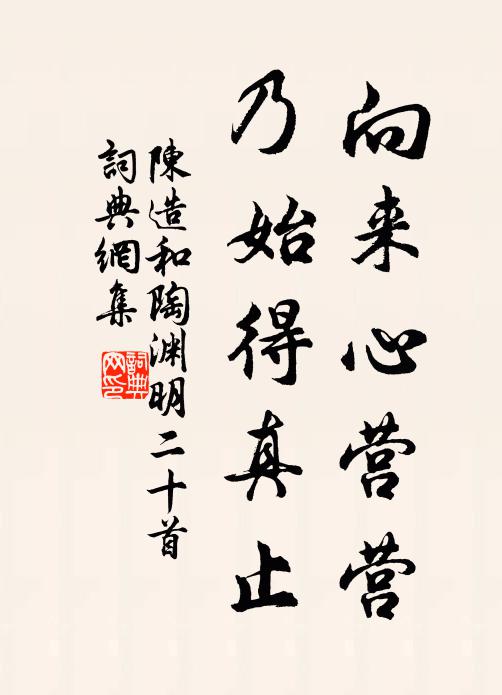 向来心营营
乃始得真止
陳造和陶渊明二十首
詞典網集
詞典网印